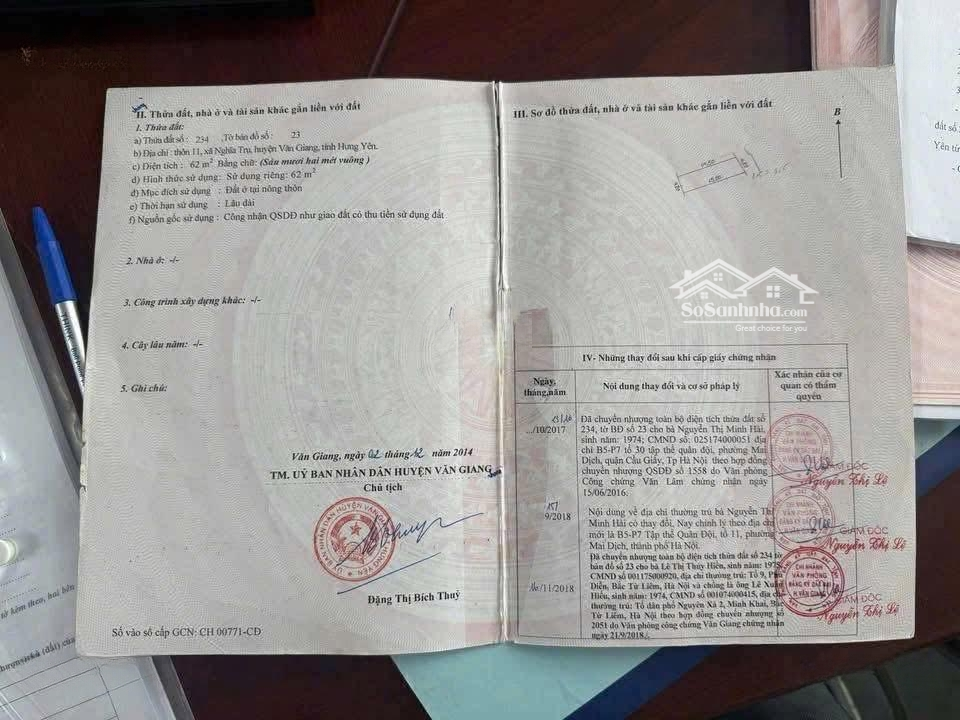 II. Thửa đất, nhà ở và tài sản khác gắn liền với đất
1. Thửa đất:
a) Thửa đất số: 234 ,Tờ bản đồ số: 23
b) Địa chỉ: thôn 11, xã Nghĩa Trụ, huyện Văn Giang, tỉnh Hưng Yên.
c) Diện tích : 62 m² Bằng chữ: (Sáu mươi hai mét vuông)
d) Hình thức sử dụng: Sử dụng riêng: 62 m²
đ) Mục đích sử dụng : Đất ở tại nông thôn
e) Thời hạn sử dụng : Lâu dài
f) Nguồn gốc sử dụng : Công nhận QSDĐ như giao đất có thu tiền sử dụng đất
2. Nhà ở: -/-
3. Công trình xây dựng khác: -/-
4. Cây lâu năm: -/-
5. Ghi chú:
Văn Giang, ngày 02 tháng 12 2014
TM. UỶ BAN NHÂN DÂN HUYỆN VĂN GIANG
Chủ tịch
Đặng Thị Bích Thuỷ
Số vào sổ cấp GCN: CH 00771-CĐ
III. Sơ đồ thửa đất, nhà ở và tài sản khác gắn liền với đất
B
SoSanhnha.com
Great choice for you
IV- Những thay đổi sau khi cấp giấy chứng nhận
Ngày, tháng,năm
Nội dung thay đổi và cơ sở pháp lý
Xác nhận của cơ quan có thẩm quyền
.../10/2017
Đã chuyển nhượng toàn bộ diện tích thửa đất số
234, tờ BĐ số 23 cho bà Nguyễn Thị Minh Hải,
sinh năm: 1974; CMND số: 025174000051 địa
chỉ B5-P7 tổ 30 tập thể quân đội, phường Mai
Dịch, quận Cầu Giấy, Tp Hà Nội theo hợp đồng
chuyển nhượng QSDĐ số 1558 do Văn phòng
Công chứng Văn Lâm chứng nhận ngày
15/06/2016.
GIÁM ĐỐC
Nguyễn Thị Lệ
9/2018
Nội dung về địa chỉ thường trú bà Nguyễn Thị
Minh Hải có thay đổi. Nay chỉnh lý theo địa chỉ
mới là B5-P7 Tập thể Quân Đội, tổ 11, phường
Mai Dịch, thành phố Hà Nội.
GIÁM ĐỐC
Nguyễn Thị Lệ
/11/2018
Đã chuyển nhượng toàn bộ diện tích thửa đất số 234 tờ
bản đồ số 23 cho bà Lê Thị Thúy Hiền, sinh năm: 1975,
CMND số 001175000920, địa chỉ thường trú: Tổ 9, Phú
Diễn, Bắc Từ Liêm, Hà Nội và chồng là ông Lê Xuân
Hiếu, sinh năm: 1974, CMND số 001074000415, địa chỉ
thường trú: Tổ dân phố Nguyên Xá 2, Minh Khai, Bắc
Từ Liêm, Hà Nội theo hợp đồng chuyển nhượng số
2051 do Văn phòng công chứng Văn Giang chứng nhận
ngày 21/9/2018./.
CHI NHÁNH
VĂN PHÒNG
ĐĂNG KÝ ĐẤT ĐAI
H.VĂN GIANG
GIÁM ĐỐC
Nguyễn Thị Lệ